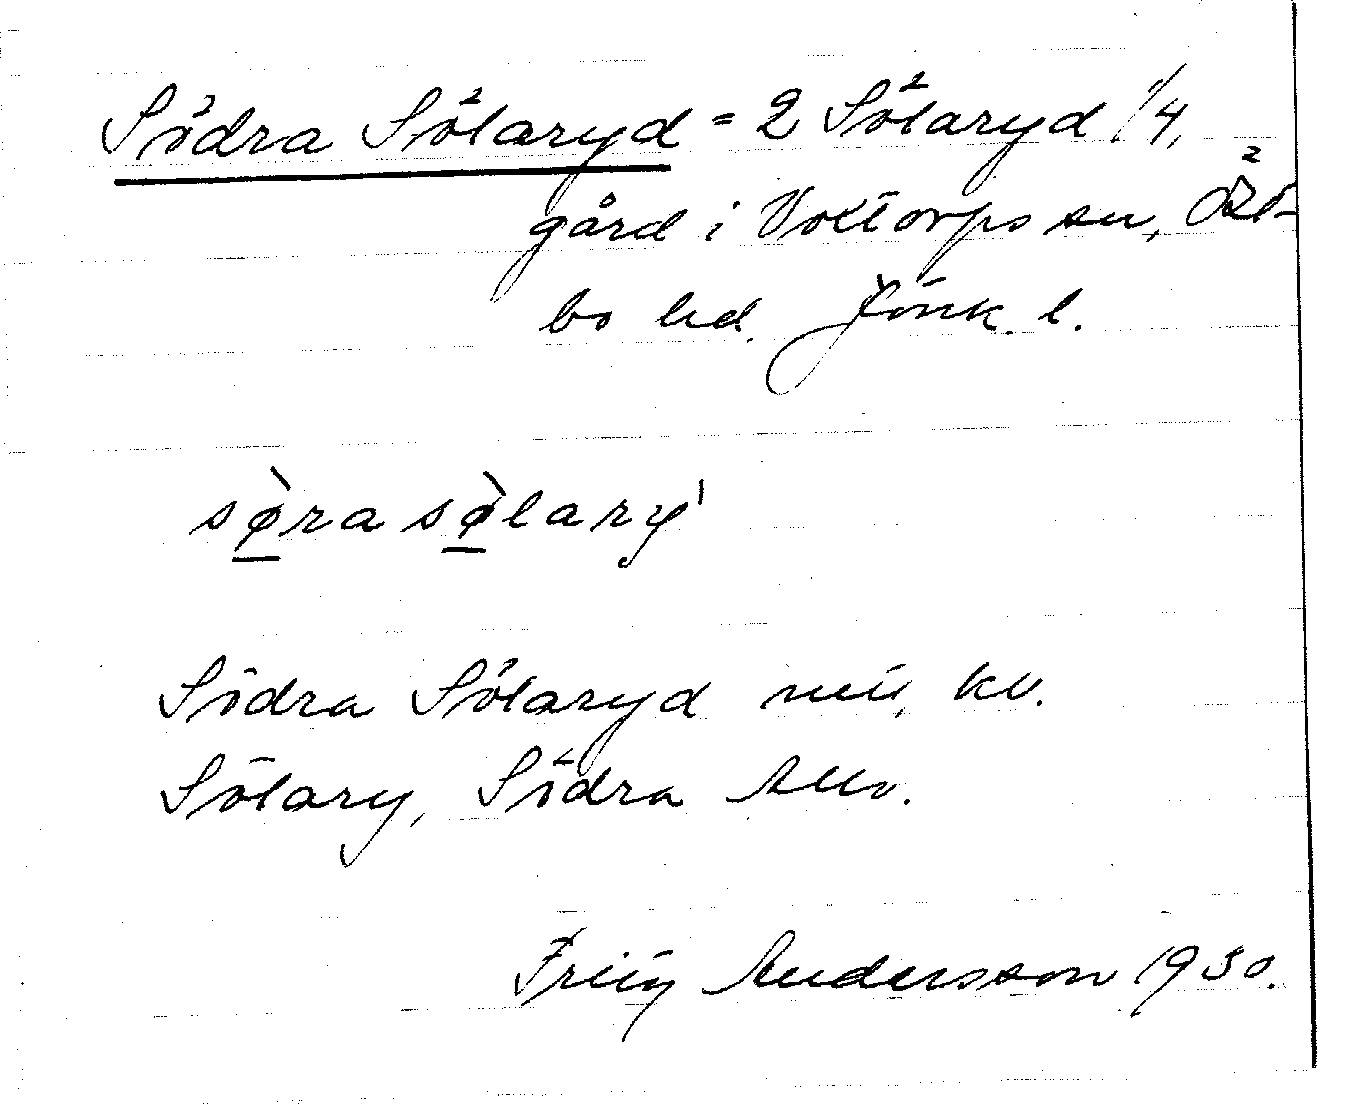 Södra Sölaryd = 2 Sölaryd 1/4,
gård i Voxtorps sn, Öst-
bo hd. Jönk. l.
sø̀ra sø̀lary'
Södra Sölaryd mtl, kv.
Sölary, Södra
Fritz Andersson 1930.